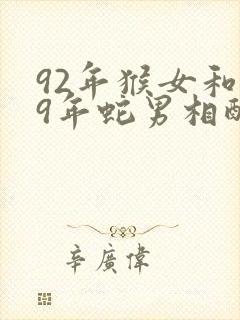 92年猴女和
9年蛇男相配
辛廣偉